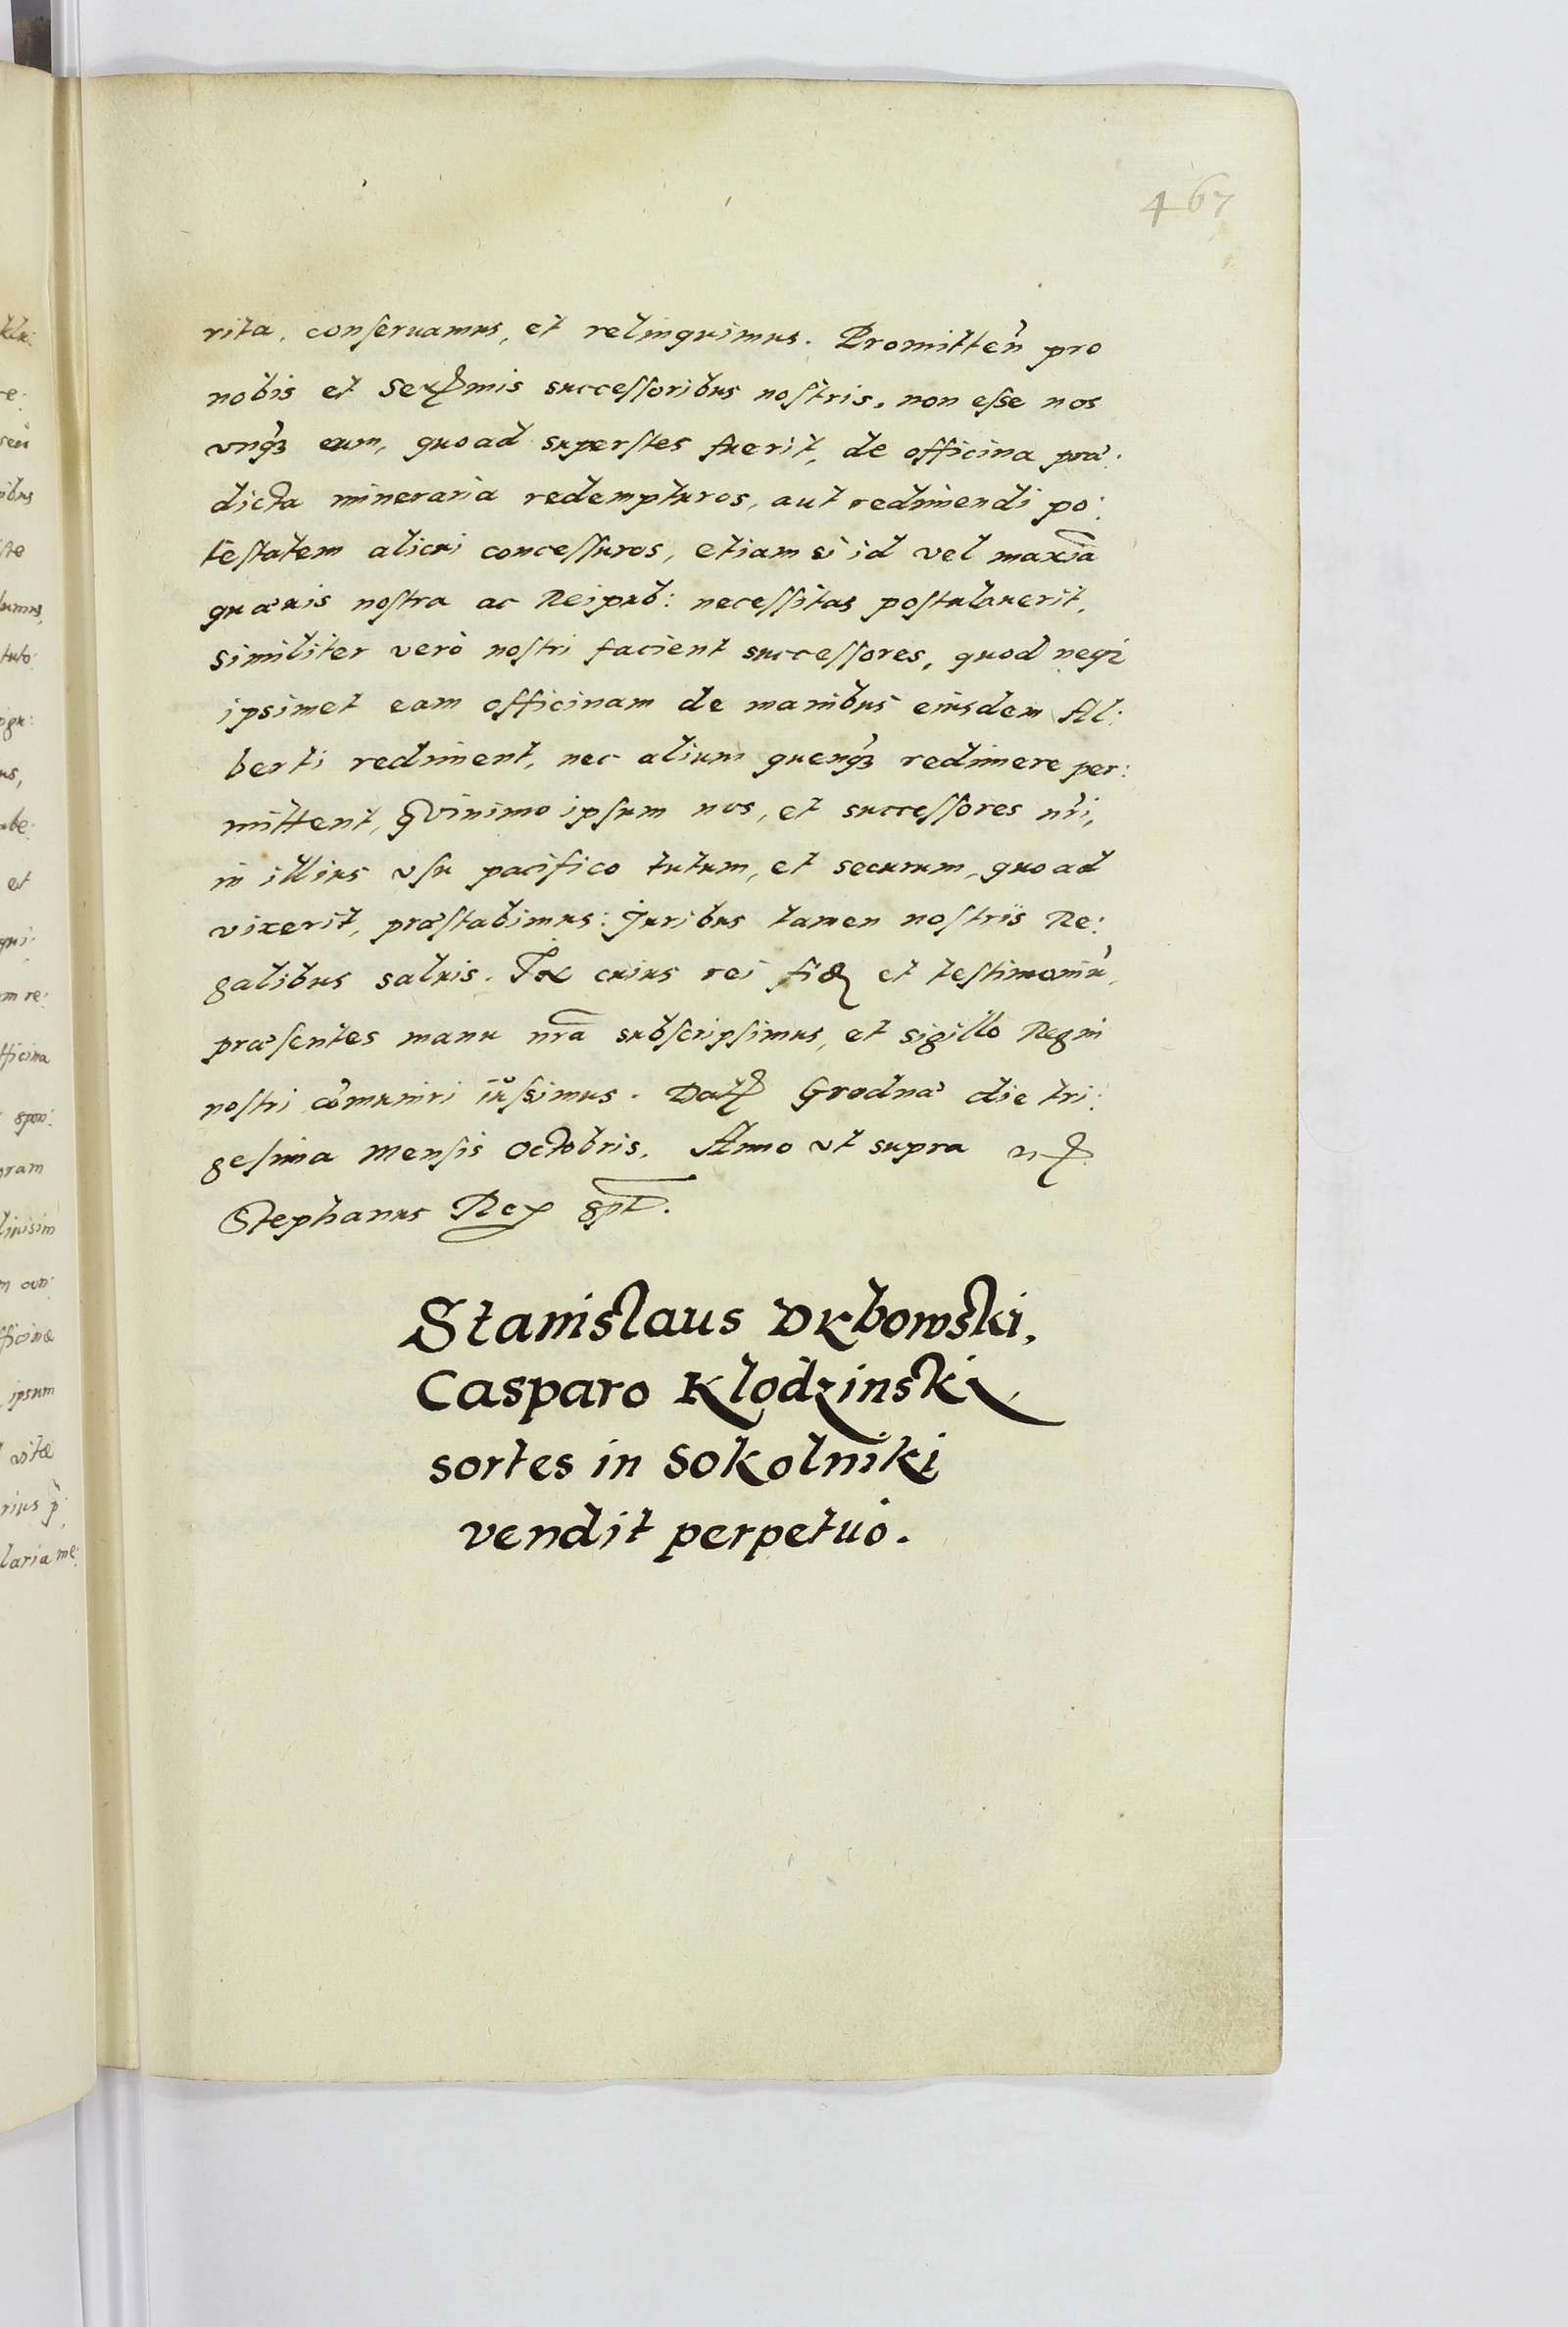 467
rita, conſeruamus, et relinquimus. Promitteñ pro
nobis et Sermis succeſſoribus noſtris, non eſse nos
vnq̃ eum, quoad superſtes fuerit, de officina præ:
dicta mineraria redempturos, aut redimendi po:
teſtatem alicui conceſſuros, etiam si id vel maxiã
quæuis noſtra ac Reipub: neceſſitas poſtulauerit,
similiter verò noſtri facient succeſſores, quod neqȝ
ipsimet eam officinam de manibus eiusdem Al:
berti rediment, nec alium quenqȝ redimere per:
mittent, Quinimo ipſum nos, et succeſſores nr̃i,
in illius vſu pacifico tutum, et securum, quoad
vixerit, præſtabimus: Juribus tamen noſtris Re:
galibus saluis. In cuius rei fid et teſtimoniũ,
præſentes manu nrã subſcripſimus, et sigillo Regni
noſtri cõmuniri iuſsimus. Dat Grodnæ die tri:
geſima Menſis Octobris, Anno vt supra
Stephanus Rex spt.
Stanislaus Dębowski,
Casparo Klodzinski
sortes in Sokolniki
vendit perpetuò.